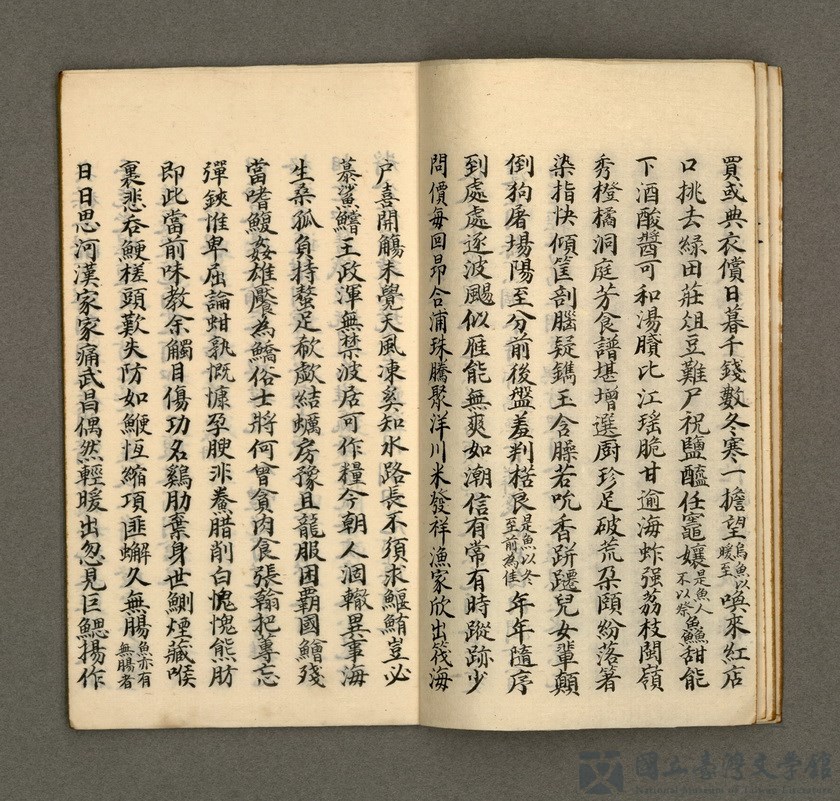 買或典衣償日暮千錢數冬寒一擔望烏魚以暖至喚來紅店
口挑去緑田莊俎豆難尸祝鹽醯任竈孃是魚人不以祭魚鱻甜能
下酒酸醬可和湯贋比江瑶脆甘逾海蚱强荔枝閩嶺
秀橙橘洞庭芳食譜堪增選厨珍足破荒朶頤紛落著
染指快傾筐剖腦疑鐫玉含臊若吮香跰躚兒女輩顛
倒狗屠塲陽至分前後盤羞判楛良是魚以冬至前為佳年年隨序
到處處逐波颺似雁能無爽如潮信有常有時蹤跡少
問價每回昂合浦珠騰聚洋川米發祥漁家欣出筏海
户喜開觴未覺天風凍奚知水路長不須求鰋鮪豈必
慕鯊鱨王政渾無禁波居可作糧今朝人涸轍異事海
生桑孤負持螯足欷歔結蠣房豫且龍服困覇國鱠殘
當嗜鰒姦雄饜為鱎俗士將何曾貪肉食張翰把蓴忘
彈鋏惟卑屈論蚶孰慨慷孕腴非鯗腊削白愧熊肪
即此當前味教余觸目傷功名鷄肋棄身世鰂煙藏喉
裏悲吞鯁槎頭歎失防如鯾恆縮項匪蠏久無腸魚亦有無腸者
日日思河漢家家痛武昌偶然輕暖出忽見巨鰓揚作
國立臺灣文學館
National Museum of Taiwan Literature